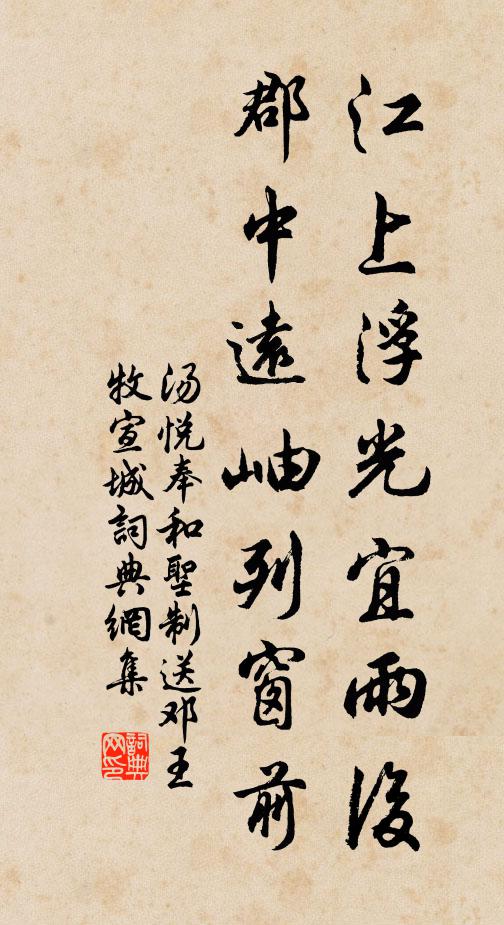 江上浮光宜雨後
郡中遠岫列窗前
汤悦奉和聖制送邓王
牧宣城詞典網集
詞典
网印